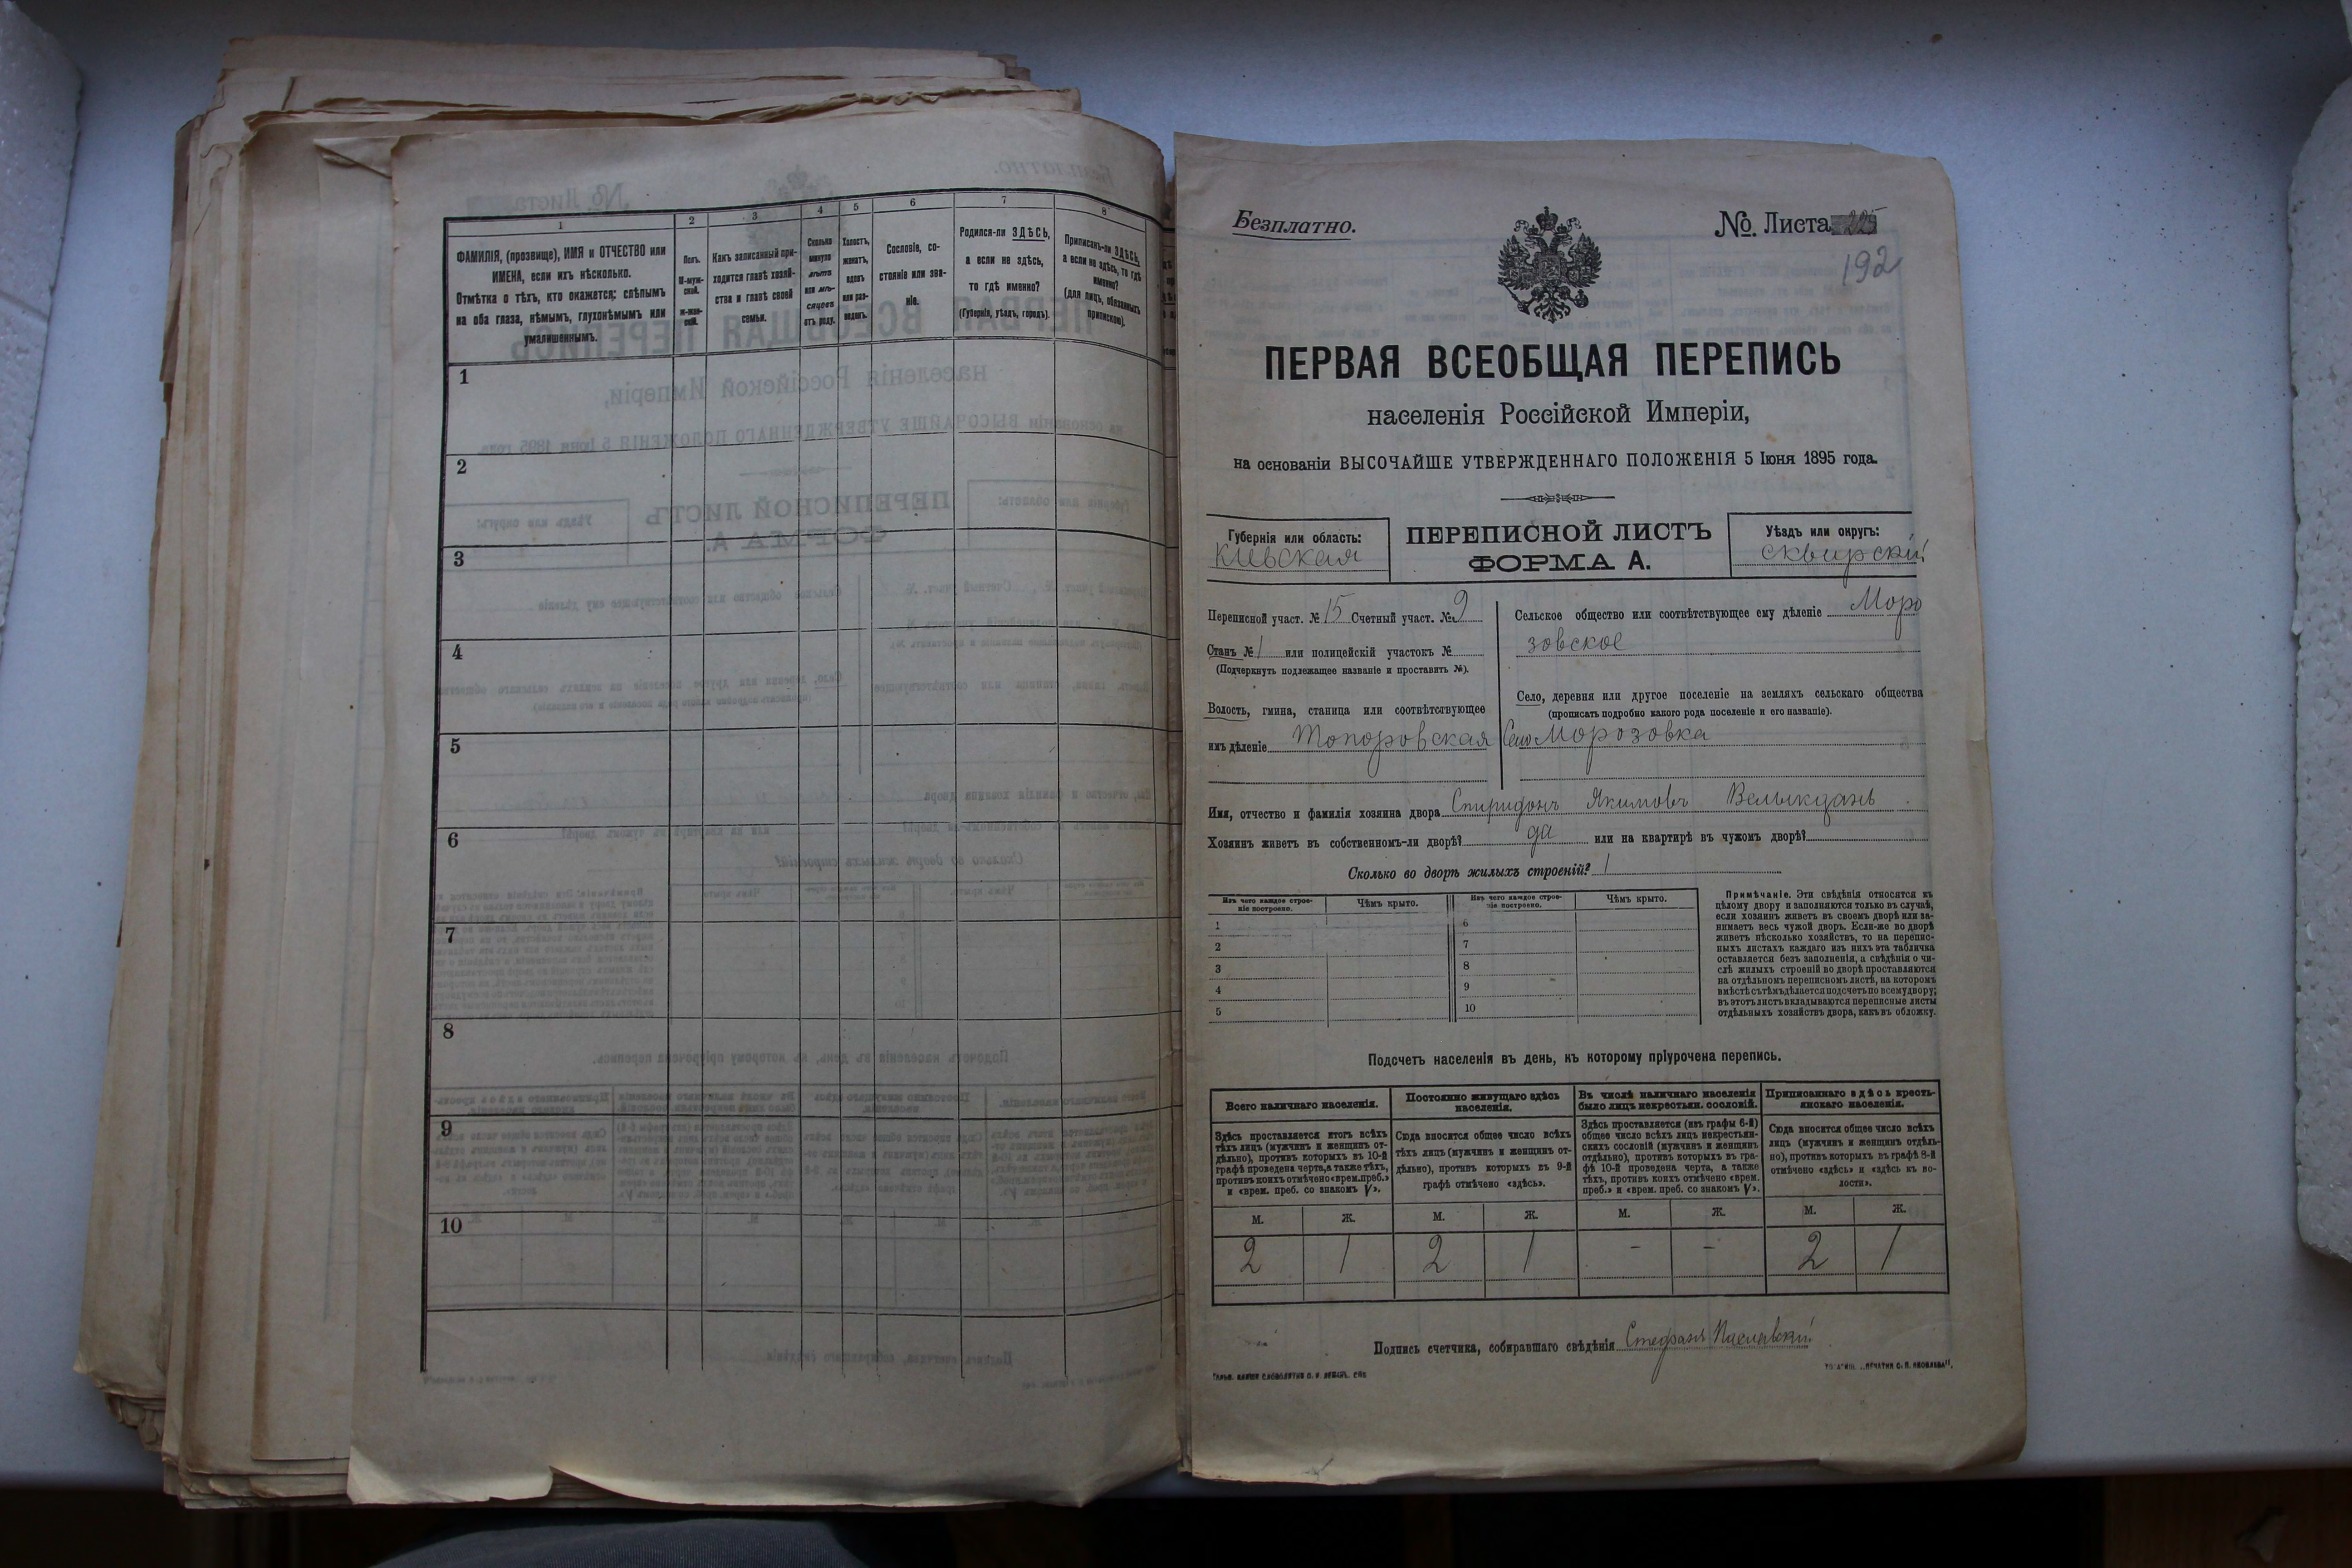 1 2 3 4 5 6 7 8
ФАМИЛІЯ, (прозвище), ИМЯ и ОТЧЕСТВО или
ИМЕНА, если ихъ нѣсколько.
Отмѣтка о тѣхъ, кто окажется: слѣпымъ
на оба глаза, нѣмымъ, глухонѣмымъ или
умалишеннымъ.
Полъ.
М-муж-
ской.
ж-жен-
скій.
Какъ записанный при-
ходится главѣ хозяй-
ства и главѣ своей
семьи.
Сколько
минуло
лѣтъ
или мѣ-
сяцевъ
отъ роду.
Холостъ,
женатъ,
вдовъ
или раз-
веденъ.
Сословіе, со-
стояніе или зва-
ніе.
Родился-ли ЗДѢСЬ,
а если не здѣсь,
то гдѣ именно?
(Губернія, уѣздъ, городъ).
Приписанъ-ли ЗДѢСЬ,
а если не здѣсь, то гдѣ
именно?
(для лицъ, обязанныхъ
припискою).
1
2
3
4
5
6
7
8
9
10
Безплатно.
№. Листа
192
ПЕРВАЯ ВСЕОБЩАЯ ПЕРЕПИСЬ
населенія Россійской Имперіи,
на основаніи ВЫСОЧАЙШЕ УТВЕРЖДЕННАГО ПОЛОЖЕНІЯ 5 Іюня 1895 года.
Губернія или область:
Кіевская
ПЕРЕПИСНОЙ ЛИСТЪ
ФОРМА А.
Уѣздъ или округъ:
Сквирскій
Переписной участ. № 15 Счетный участ. № 9
Станъ № 1 или полицейскій участокъ №
(Подчеркнуть подлежащее названіе и проставить №).
Волость, гмина, станица или соотвѣтствующее
имъ дѣленіе Топоровская
Сельское общество или соотвѣтствующее ему дѣленіе Моро
зовское
Село, деревня или другое поселеніе на земляхъ сельскаго общества
(прописать подробно какого рода поселеніе и его названіе).
Село Морозовка
Имя, отчество и фамилія хозяина двора Спиридонъ Якимовъ Велыкданъ
Хозяинъ живетъ въ собственномъ-ли дворѣ? да или на квартирѣ въ чужомъ дворѣ?
Сколько во дворѣ жилыхъ строеній? 1
Изъ чего каждое строе-
ніе построено.
Чѣмъ крыто.
Изъ чего каждое строе-
ніе построено.
Чѣмъ крыто.
1 6
2 7
3 8
4 9
5 10
Примѣчаніе. Эти свѣдѣнія относятся къ
цѣлому двору и заполняются только въ случаѣ,
если хозяинъ живетъ въ своемъ дворѣ или за-
нимаетъ весь чужой дворъ. Если-же во дворѣ
живетъ нѣсколько хозяйствъ, то на перепис-
ныхъ листахъ каждаго изъ нихъ эта табличка
оставляется безъ заполненія, а свѣдѣнія о чи-
слѣ жилыхъ строеній во дворѣ проставляются
на отдѣльномъ переписномъ листѣ, на которомъ
вмѣстѣ съ тѣмъ дѣлается подсчетъ по всему двору;
въ этотъ листъ вкладываются переписные листы
отдѣльныхъ хозяйствъ двора, какъ въ обложку.
Подсчетъ населенія въ день, къ которому пріурочена перепись.
Всего наличнаго населенія.
Постоянно живущаго здѣсь
населенія.
Въ числѣ наличнаго населенія
было лицъ некрестьян. сословій.
Приписаннаго здѣсь кресть-
янскаго населенія.
Здѣсь проставляется итогъ всѣхъ
тѣхъ лицъ (мужчинъ и женщинъ от-
дѣльно), противъ которыхъ въ 10-й
графѣ проведена черта, а также тѣхъ,
противъ коихъ отмѣчено «врем. преб.»
и «врем. преб. со знакомъ V».
Сюда вносится общее число всѣхъ
тѣхъ лицъ (мужчинъ и женщинъ от-
дѣльно), противъ которыхъ въ 9-й
графѣ отмѣчено «здѣсь».
Здѣсь проставляется (изъ графы 6-й)
общее число всѣхъ лицъ некрестьян-
скихъ сословій (мужчинъ и женщинъ
отдѣльно), противъ которыхъ въ гра-
фѣ 10-й проведена черта, а также
тѣхъ, противъ коихъ отмѣчено «врем.
преб.» и «врем. преб. со знакомъ V».
Сюда вносится общее число всѣхъ
лицъ (мужчинъ и женщинъ отдѣль-
но), противъ которыхъ въ графѣ 8-й
отмѣчено «здѣсь» и «здѣсь къ во-
лости».
М. Ж. М. Ж. М. Ж. М. Ж.
2 1 2 1 - - 2 1
Подпись счетчика, собиравшаго свѣдѣнія Стефанъ